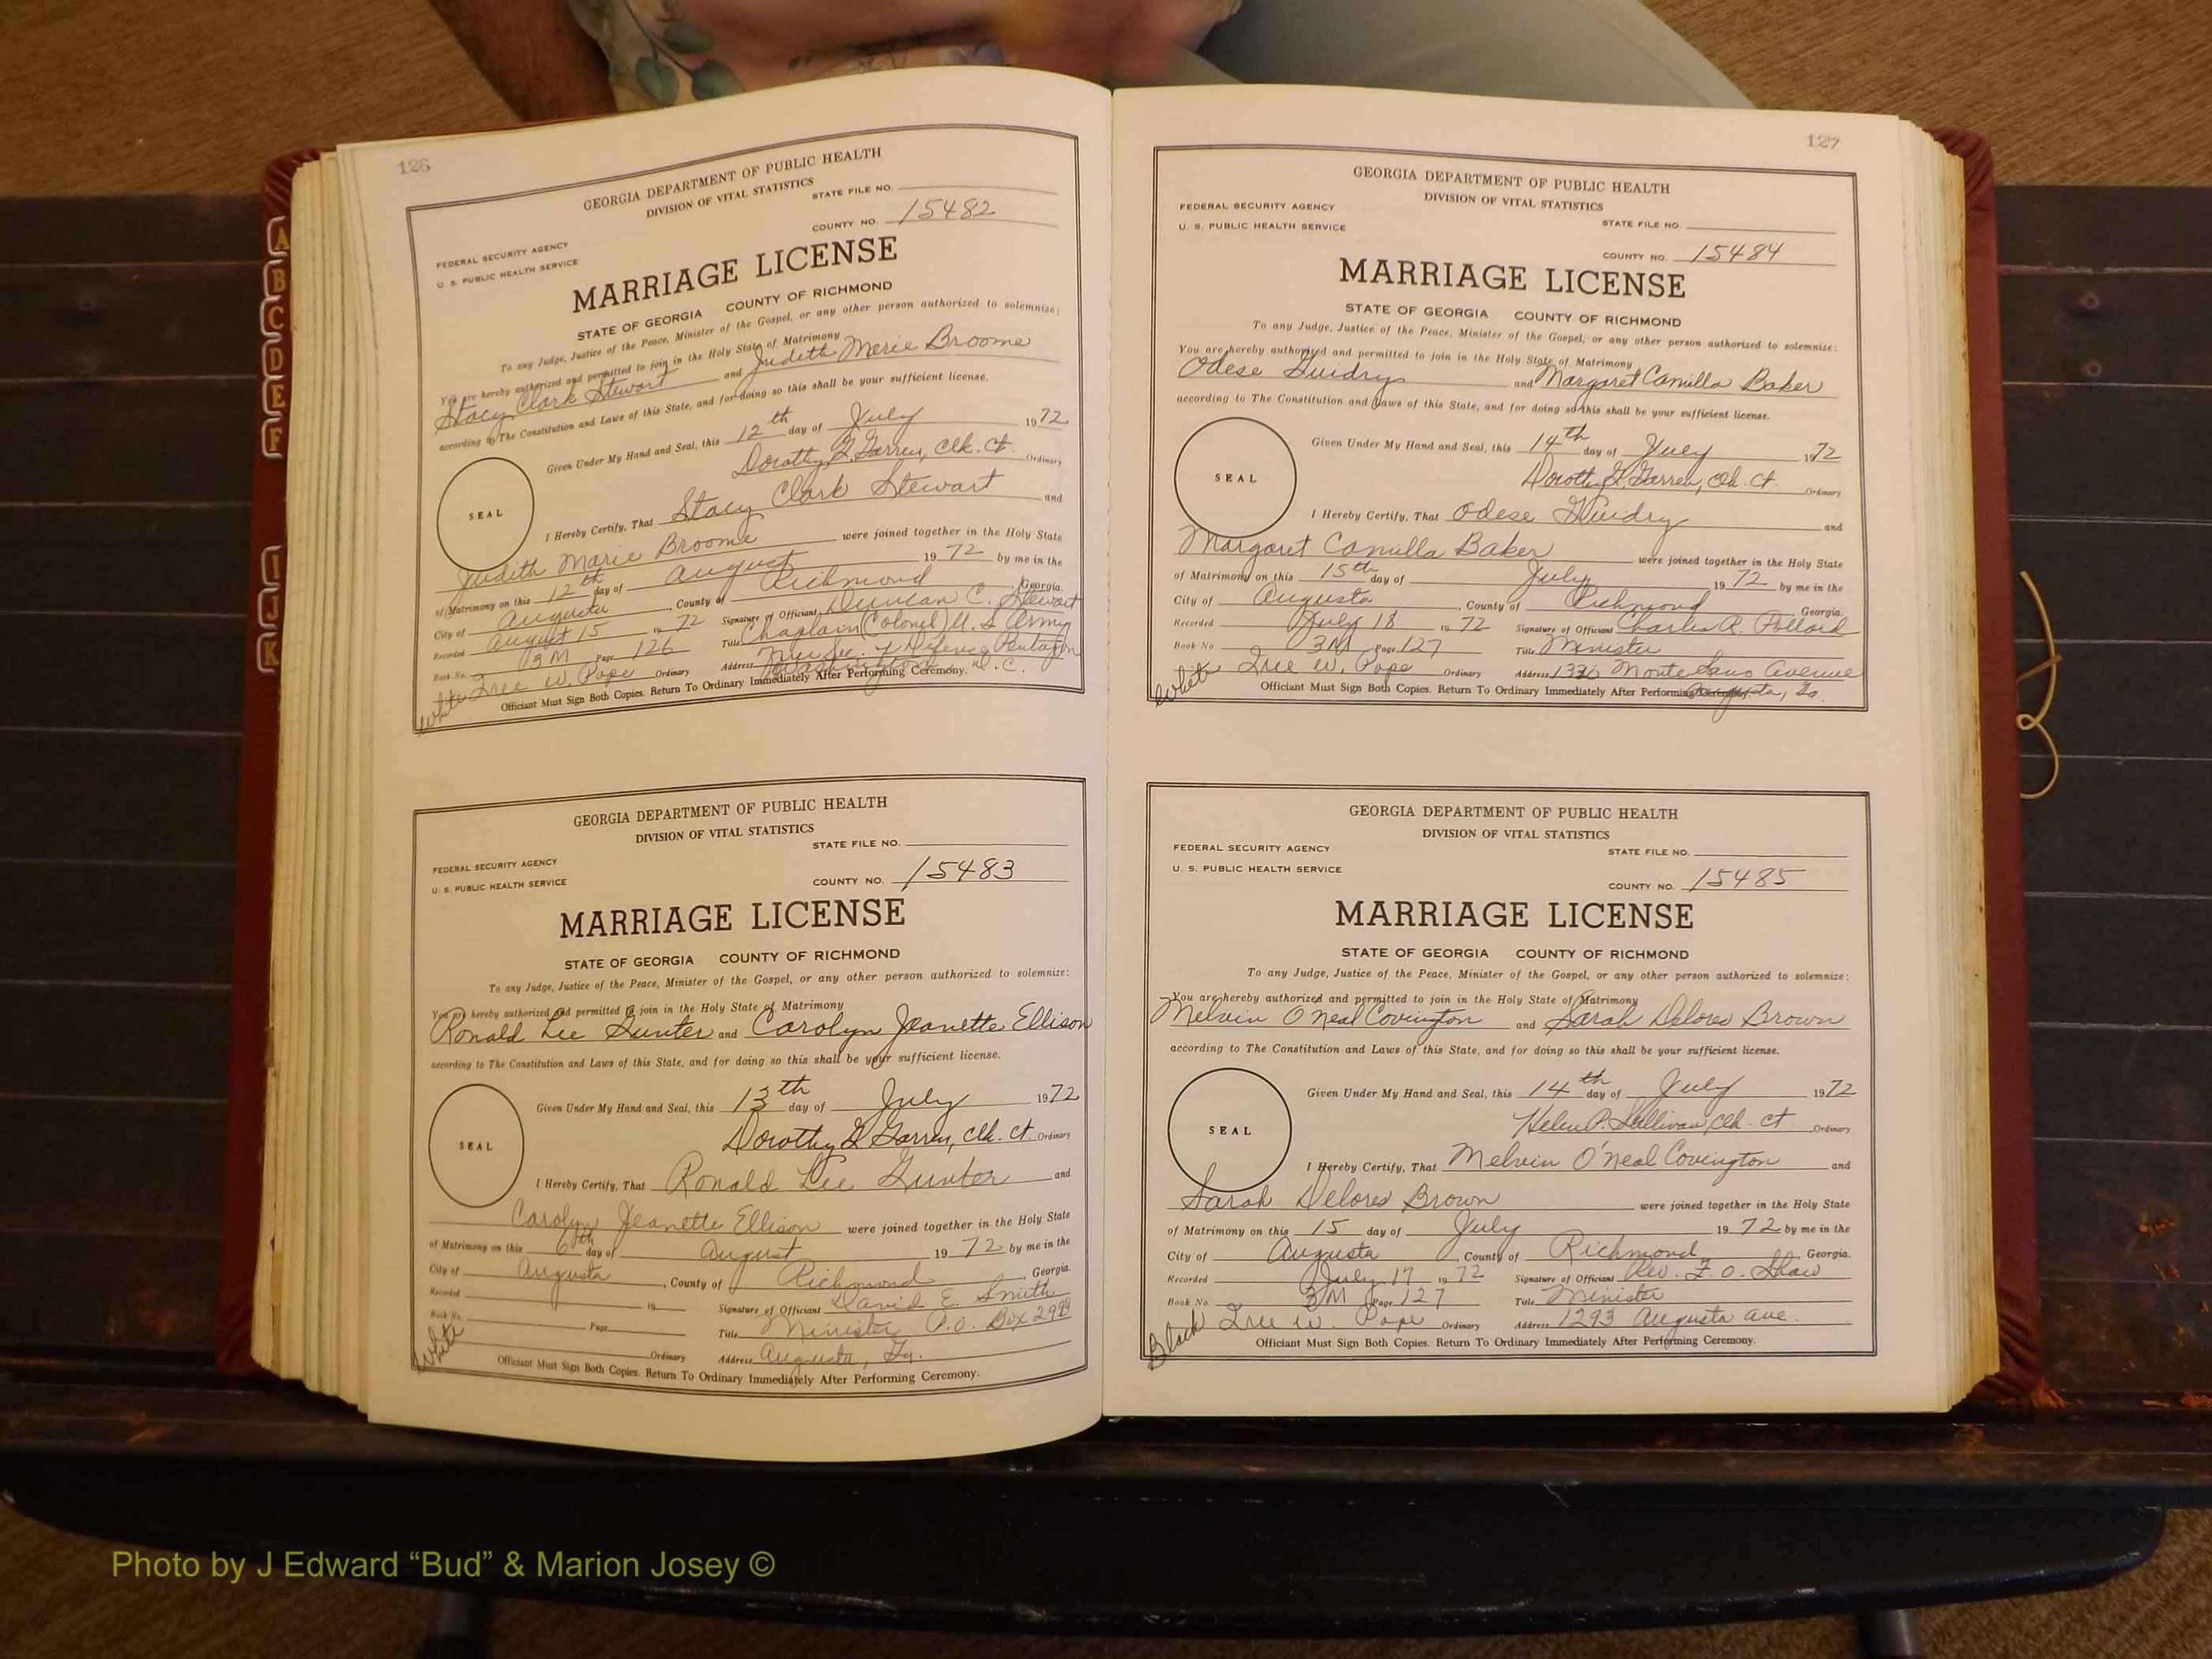 A
B
C
D
E
F
I
J
K
126
GEORGIA DEPARTMENT OF PUBLIC HEALTH
DIVISION OF VITAL STATISTICS
STATE FILE NO.
FEDERAL SECURITY AGENCY
U. S. PUBLIC HEALTH SERVICE
COUNTY NO. 15482
MARRIAGE LICENSE
STATE OF GEORGIA COUNTY OF RICHMOND
To any Judge, Justice of the Peace, Minister of the Gospel, or any other person authorized to solemnize:
You are hereby authorized and permitted to join in the Holy State of Matrimony
Stacy Clark Stewart and Judith Marie Broome
according to The Constitution and Laws of this State, and for doing so this shall be your sufficient license.
Given Under My Hand and Seal, this 12th day of July 1972
Dorothy Garren, Clk. Ct. Ordinary
SEAL
I Hereby Certify, That Stacy Clark Stewart and
Judith Marie Broome were joined together in the Holy State
of Matrimony on this 12th day of August 1972 by me in the
City of Augusta, County of Richmond, Georgia.
Recorded August 15 1972 Signature of Officiant Duncan C. Stewart
Book No. 3M Page 126 Title Chaplain (Colonel) U. S Army
White Ordinary Address Pentagon
Washington D. C.
Officiant Must Sign Both Copies. Return To Ordinary Immediately After Performing Ceremony.
GEORGIA DEPARTMENT OF PUBLIC HEALTH
DIVISION OF VITAL STATISTICS
STATE FILE NO.
FEDERAL SECURITY AGENCY
U. S. PUBLIC HEALTH SERVICE
COUNTY NO. 15483
MARRIAGE LICENSE
STATE OF GEORGIA COUNTY OF RICHMOND
To any Judge, Justice of the Peace, Minister of the Gospel, or any other person authorized to solemnize:
You are hereby authorized and permitted to join in the Holy State of Matrimony
Ronald Lee Gunter and Carolyn Jeanette Ellison
according to The Constitution and Laws of this State, and for doing so this shall be your sufficient license.
Given Under My Hand and Seal, this 13th day of July 1972
Dorothy Garren, Clk. Ct. Ordinary
SEAL
I Hereby Certify, That Ronald Lee Gunter and
Carolyn Jeanette Ellison were joined together in the Holy State
of Matrimony on this 6th day of August 1972 by me in the
City of Augusta, County of Richmond, Georgia.
Recorded 19 Signature of Officiant David E. Smith
Book No. Page Title Minister P.O. Box 2999
White Ordinary Address Augusta, Ga.
Officiant Must Sign Both Copies. Return To Ordinary Immediately After Performing Ceremony.
127
GEORGIA DEPARTMENT OF PUBLIC HEALTH
DIVISION OF VITAL STATISTICS
FEDERAL SECURITY AGENCY
STATE FILE NO.
U. S. PUBLIC HEALTH SERVICE
COUNTY NO. 15484
MARRIAGE LICENSE
STATE OF GEORGIA COUNTY OF RICHMOND
To any Judge, Justice of the Peace, Minister of the Gospel, or any other person authorized to solemnize:
You are hereby authorized and permitted to join in the Holy State of Matrimony
Odese Guidry and Margaret Camilla Baker
according to The Constitution and Laws of this State, and for doing so this shall be your sufficient license.
Given Under My Hand and Seal, this 14th day of July 1972
Dorothy Garren, Clk. Ct. Ordinary
SEAL
I Hereby Certify, That Odese Guidry and
Margaret Camilla Baker were joined together in the Holy State
of Matrimony on this 15th day of July 1972 by me in the
City of Augusta, County of Richmond, Georgia.
Recorded July 18 1972 Signature of Officiant Charles R. Pollard
Book No. 3M Page 127 Title Minister
White W. Pope Ordinary Address Monte Sano Avenue
Augusta, Ga.
Officiant Must Sign Both Copies. Return To Ordinary Immediately After Performing Ceremony.
GEORGIA DEPARTMENT OF PUBLIC HEALTH
DIVISION OF VITAL STATISTICS
FEDERAL SECURITY AGENCY
STATE FILE NO.
U. S. PUBLIC HEALTH SERVICE
COUNTY NO. 15485
MARRIAGE LICENSE
STATE OF GEORGIA COUNTY OF RICHMOND
To any Judge, Justice of the Peace, Minister of the Gospel, or any other person authorized to solemnize:
You are hereby authorized and permitted to join in the Holy State of Matrimony
Melvin O'Neal Covington and Sarah Delores Brown
according to The Constitution and Laws of this State, and for doing so this shall be your sufficient license.
Given Under My Hand and Seal, this 14th day of July 1972
Helen P. Sullivan, Clk. Ct. Ordinary
SEAL
I Hereby Certify, That Melvin O'Neal Covington and
Sarah Delores Brown were joined together in the Holy State
of Matrimony on this 15 day of July 1972 by me in the
City of Augusta, County of Richmond, Georgia.
Recorded July 17 1972 Signature of Officiant Rev. F. O. Shaw
Book No. 3M Page 127 Title Minister
Black W. Pope Ordinary Address 1293 Augusta Ave.
Officiant Must Sign Both Copies. Return To Ordinary Immediately After Performing Ceremony.
Photo by J Edward “Bud” & Marion Josey ©